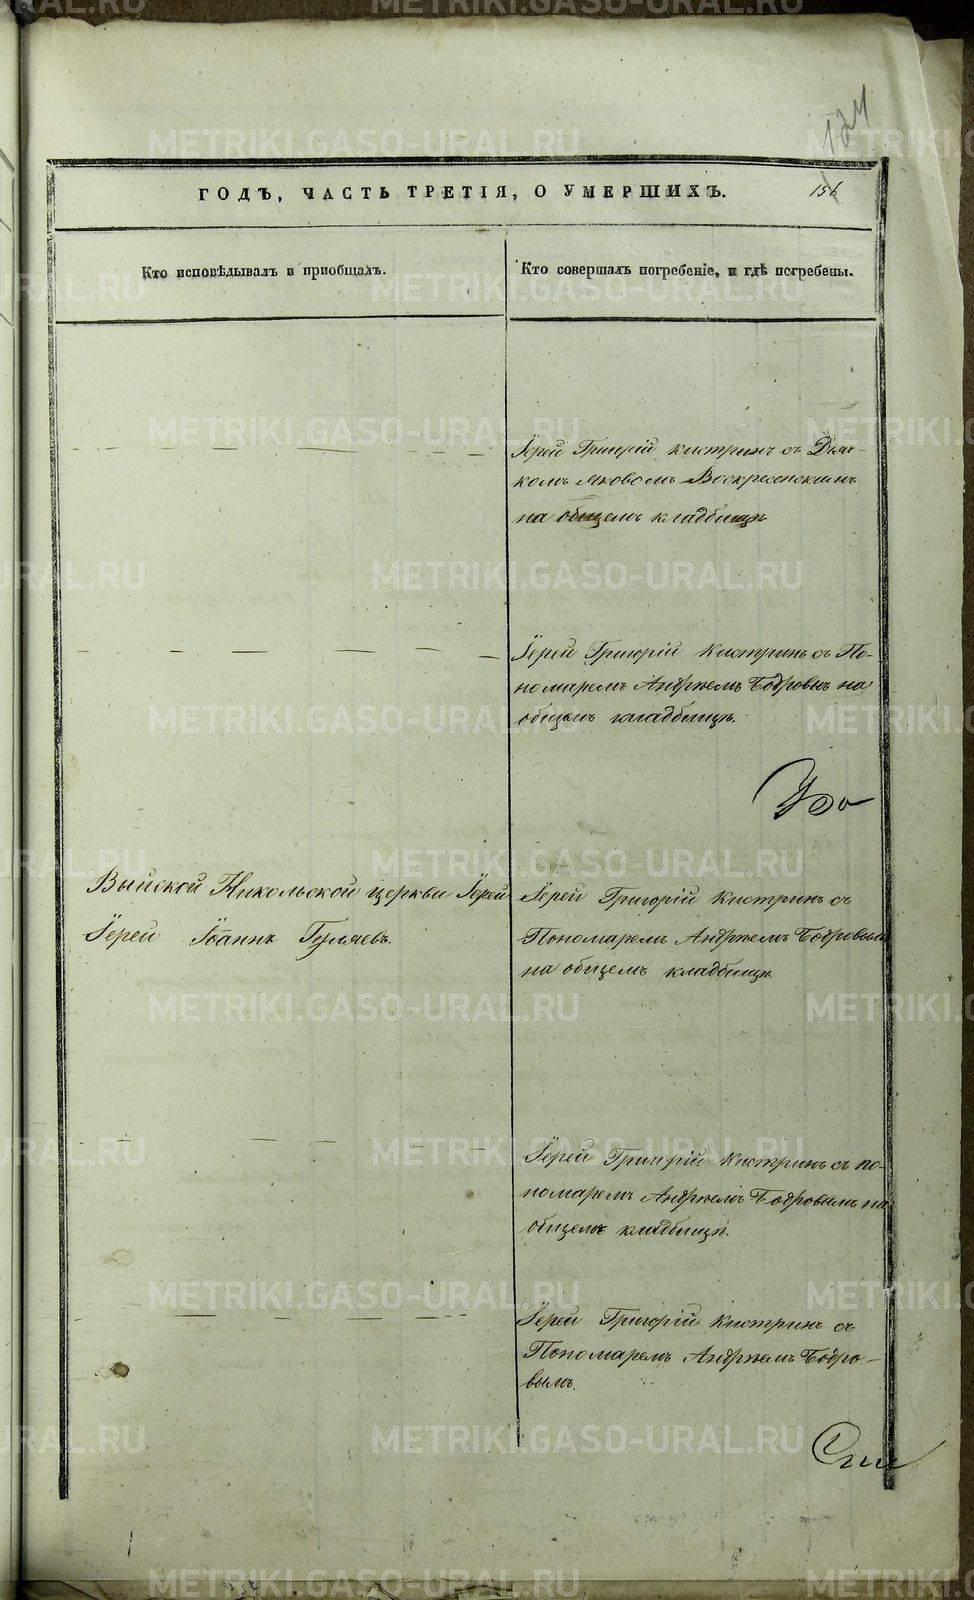 124
ГОДЪ, ЧАСТЬ ТРЕТІЯ, О УМЕРШИХЪ.
156
Кто исповѣдывалъ и пріобщалъ.
Кто совершалъ погребеніе, и гдѣ погребены.
Іерей Григорій Кистринъ съ Дьяч-
комъ Яковомъ Воскресенскимъ
на общемъ кладбищѣ
Іерей Григорій Кистринъ съ По-
номаремъ Андреемъ Бодровы на
общемъ кладбищѣ.
Выйской Николаьской церкви Іерей
Іерей Іоаннъ Гуляевъ.
Іерей Григорій Кистринъ съ
Пономаремъ Андреемъ Бодровымъ
на общемъ кладбищѣ.
Іерей Григорій Кистринъ съ по-
номаремъ Андреемъ Бодровымъ на
общемъ кладбищѣ.
Іерей Григорій Кистринъ съ
Пономаремъ Андреемъ Бодро-
вымъ.
METRIKI.GASO-URAL.RU